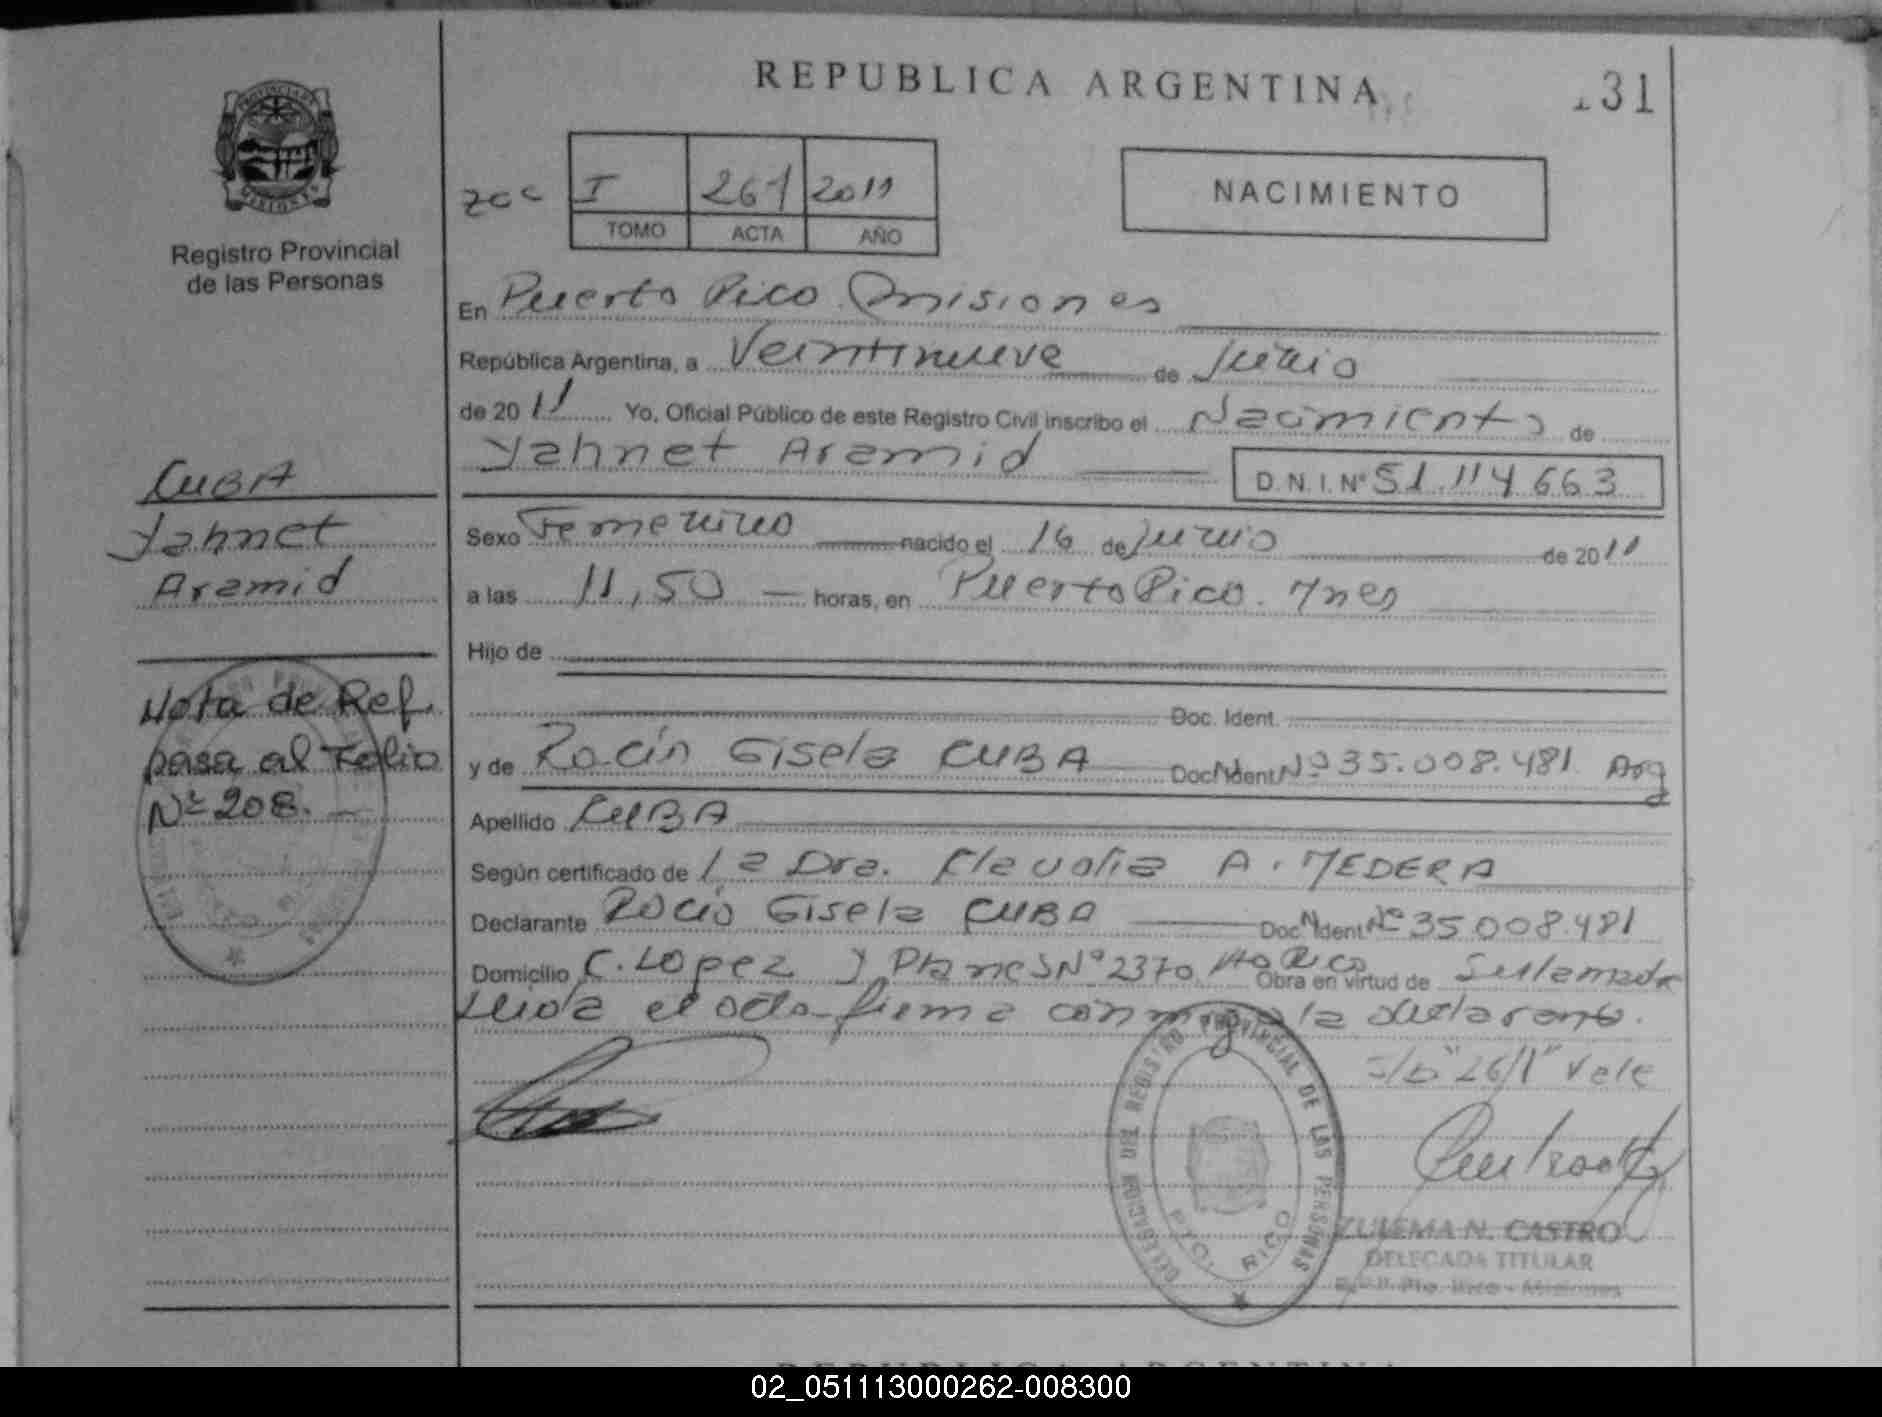 REPUBLICA ARGENTINA
131
PROVINCIA DE MISIONES
Registro Provincial
de las Personas
I 261 2011
TOMO ACTA AÑO
NACIMIENTO
En Puerto Rico Misiones
República Argentina, a Veintinueve de Junio
de 2011 Yo, Oficial Público de este Registro Civil inscribo el Nacimiento de
Yahnet Aramid D.N.I. Nº 51.114.663
CUBA
Yahnet
Aramid
Sexo Femenino nacido el 16 de Junio de 2011
a las 11,50 horas, en Puerto Rico. Mnes
Hijo de
Doc. Ident.
Nota de Ref.
pasa al Folio
Nº 208.
y de Rocío Gisela CUBA Doc. Ident Nº 35.008.481 Arg
Apellido CUBA
Según certificado de la Dra. Claudia A. MEDERA
Declarante Rocío Gisela CUBA Doc. Ident Nº 35.008.481
Domicilio C. Lopez y Planes Nº 2370 Pto Rico Obra en virtud de Ser la madre
Leida el acta firma conmigo la declarante.
S/b "261" Vale
DELEGACION DEL REGISTRO PROVINCIAL DE LAS PERSONAS
PTO. RICO
ZULEMA N. CASTRO
DELEGADA TITULAR
R.P.P. Pto. Rico - Misiones
REPUBLICA ARGENTINA
02_051113000262-008300